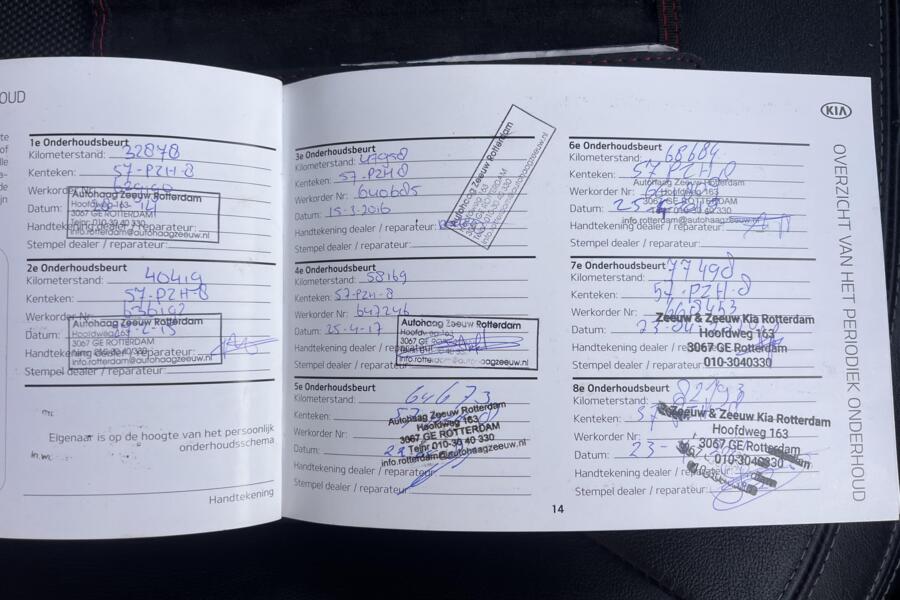 OUD
1e Onderhoudsbeurt
Kilometerstand: 32878
Kenteken: 57-PZH-8
Werkorder Nr:
Autohaag Zeeuw Rotterdam
Hoofdweg 163
Datum:
3067 GE ROTTERDAM
Telnr 010-30 40 330
Handtekening dealer / reparateur:
info.rotterdam@autohaagzeeuw.nl
Stempel dealer / reparateur:
2e Onderhoudsbeurt
Kilometerstand: 40419
Kenteken: 57-PZH-8
Werkorder Nr: 636192
Autohaag Zeeuw Rotterdam
Hoofdweg 163
Datum:
3067 GE ROTTERDAM
Handtekening dealer / reparateur:
info.rotterdam@autohaagzeeuw.nl
Stempel dealer / reparateur:
Eigenaar is op de hoogte van het persoonlijk
onderhoudsschema
Handtekening
3e Onderhoudsbeurt
Kilometerstand: 47958
Kenteken: 57-PZH8
Werkorder Nr: 640685
Datum: 15-3-2016
Handtekening dealer / reparateur:
Stempel dealer / reparateur:
Autohaag Zeeuw Rotterdam
info.rotterdam@autohaagzeeuw.nl
4e Onderhoudsbeurt
Kilometerstand: 58169
Kenteken: 57-PZH-8
Werkorder Nr: 647246
Datum: 25-4-17
Autohaag Zeeuw Rotterdam
Hoofdweg 163
Handtekening dealer / reparateur:
3067 GE
info.rotterdam@autohaagzeeuw.nl
Stempel dealer / reparateur:
5e Onderhoudsbeurt
Kilometerstand: 64673
Kenteken:
Autohaag Zeeuw Rotterdam
Werkorder Nr:
Hoofdweg 163
3067 GE ROTTERDAM
Datum:
Telnr 010-30 40 330
info.rotterdam@autohaagzeeuw.nl
Handtekening dealer / reparateur:
Stempel dealer / reparateur:
14
6e Onderhoudsbeurt
Kilometerstand: 68684
Kenteken: 57 PZH 8
Autohaag Zeeuw Rotterdam
Werkorder Nr:
Hoofdweg 163
Datum:
3067 GE ROTTERDAM
info.rotterdam@autohaagzeeuw.nl
Handtekening dealer / reparateur:
Stempel dealer / reparateur:
7e Onderhoudsbeurt
Kilometerstand: 77498
Kenteken: 57-PZH-8
Werkorder Nr:
Zeeuw & Zeeuw Kia Rotterdam
Datum:
Hoofdweg 163
Handtekening dealer / reparateur:
3067 GE Rotterdam
010-3040330
Stempel dealer / reparateur:
8e Onderhoudsbeurt
Kilometerstand: 82193
Kenteken:
Zeeuw & Zeeuw Kia Rotterdam
Werkorder Nr:
Hoofdweg 163
Datum:
3067 GE Rotterdam
010-3040330
Handtekening dealer / reparateur:
Stempel dealer / reparateur:
KIA
OVERZICHT VAN HET PERIODIEK ONDERHOUD